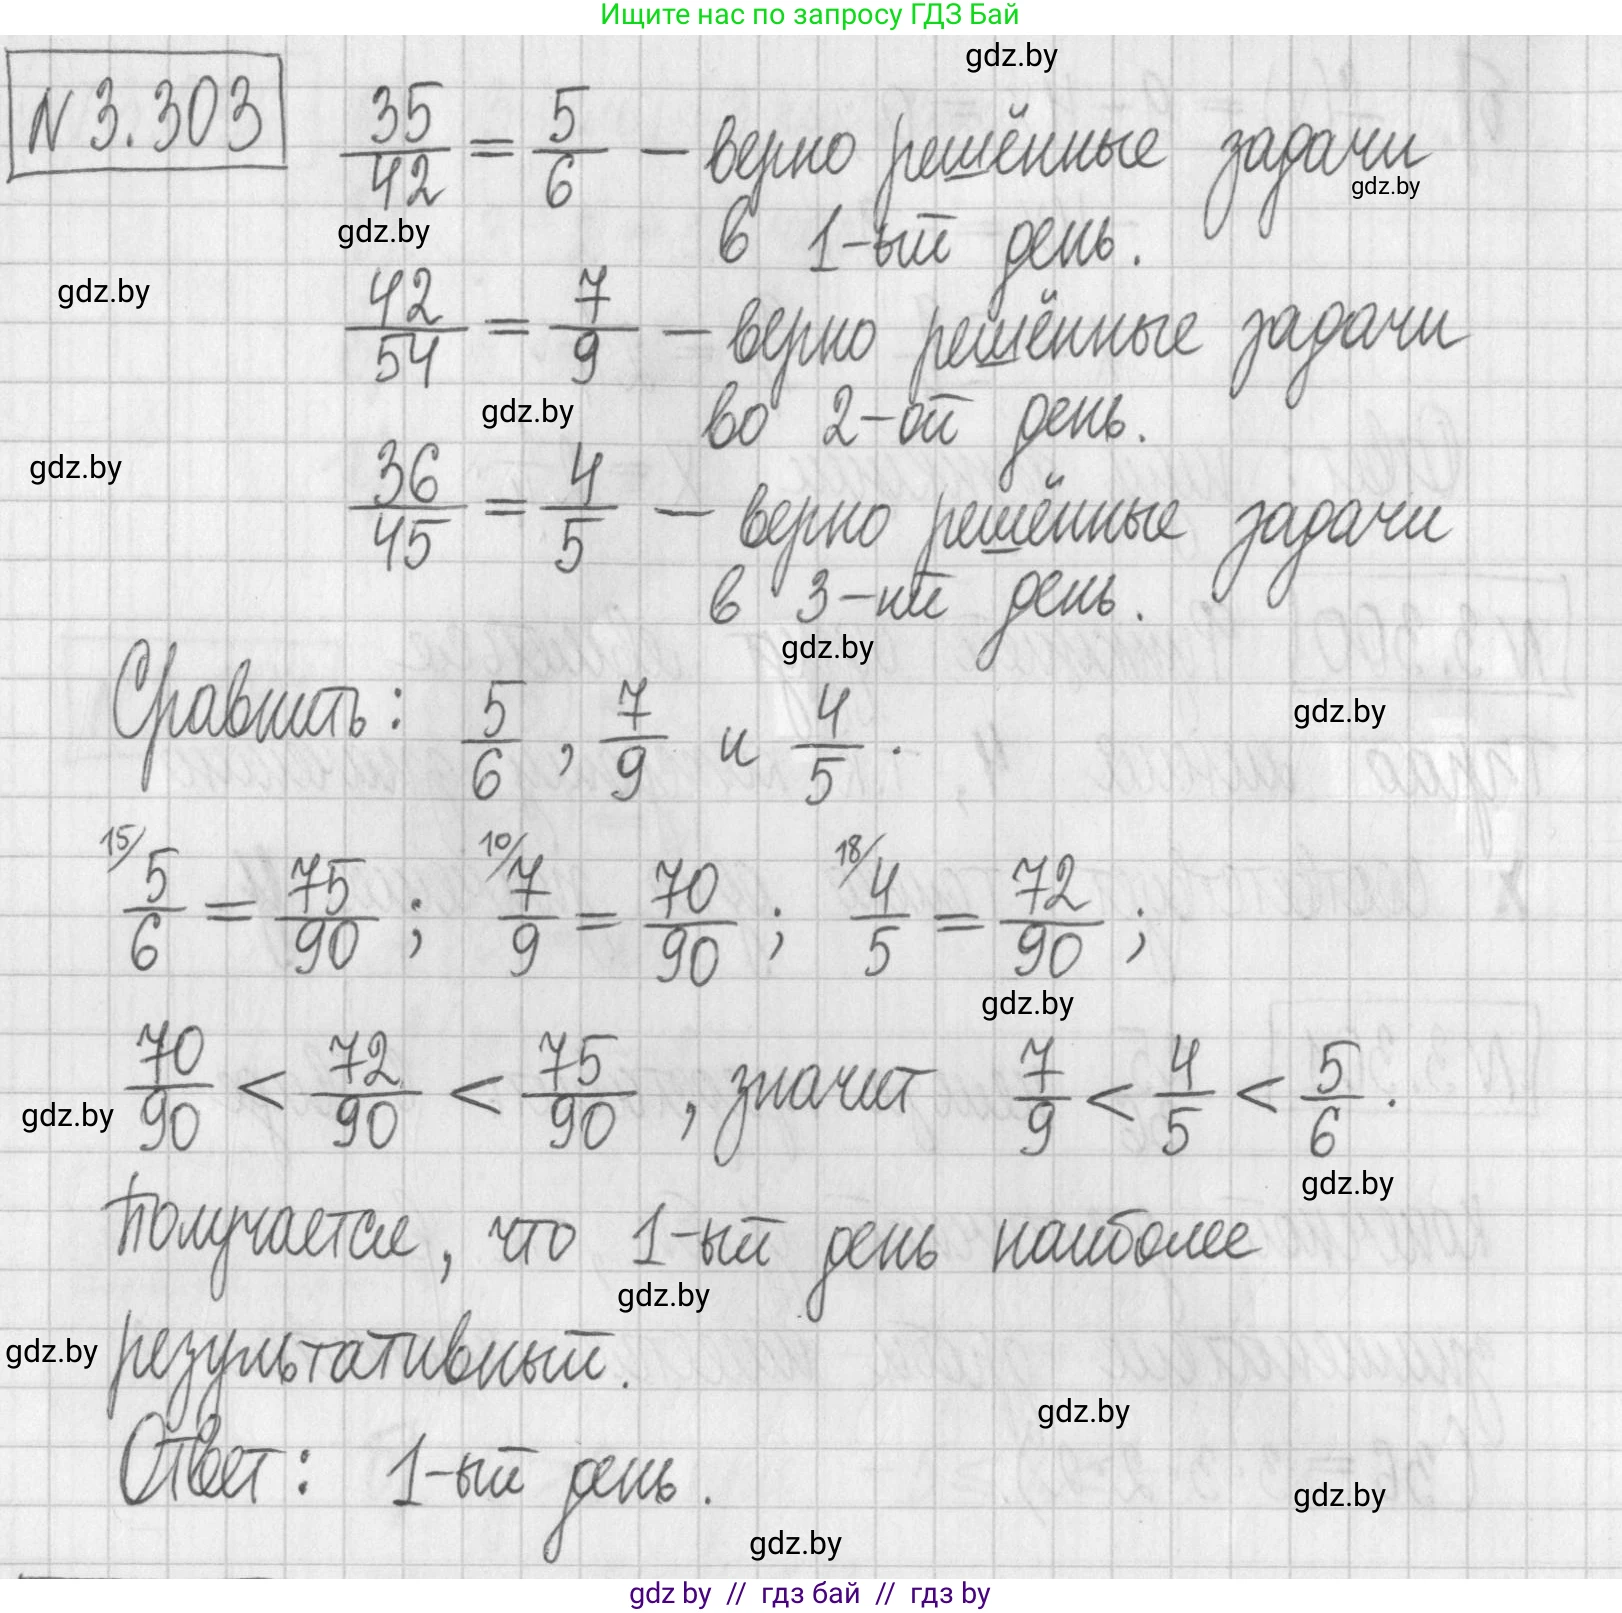 Ищите нас по запросу ГДЗ Бай
gdz.by
N 3.303
35/42 = 5/6 — верно решённые задачи
gdz.by
gdz.by
в 1-ый день.
gdz.by
42/54 = 7/9 — верно решённые задачи
gdz.by
во 2-ой день.
gdz.by
36/45 = 4/5 — верно решённые задачи
в 3-ий день.
gdz.by
Сравнить: 5/6, 7/9 и 4/5.
gdz.by
15/ 5/6 = 75/90; 10/ 7/9 = 70/90; 18/ 4/5 = 72/90;
gdz.by
70/90 < 72/90 < 75/90, значит 7/9 < 4/5 < 5/6.
gdz.by
gdz.by
Получается, что 1-ый день наиболее
gdz.by
gdz.by
результативный.
gdz.by
Ответ: 1-ый день.
gdz.by
gdz.by
gdz by // гдз бай // гдз by